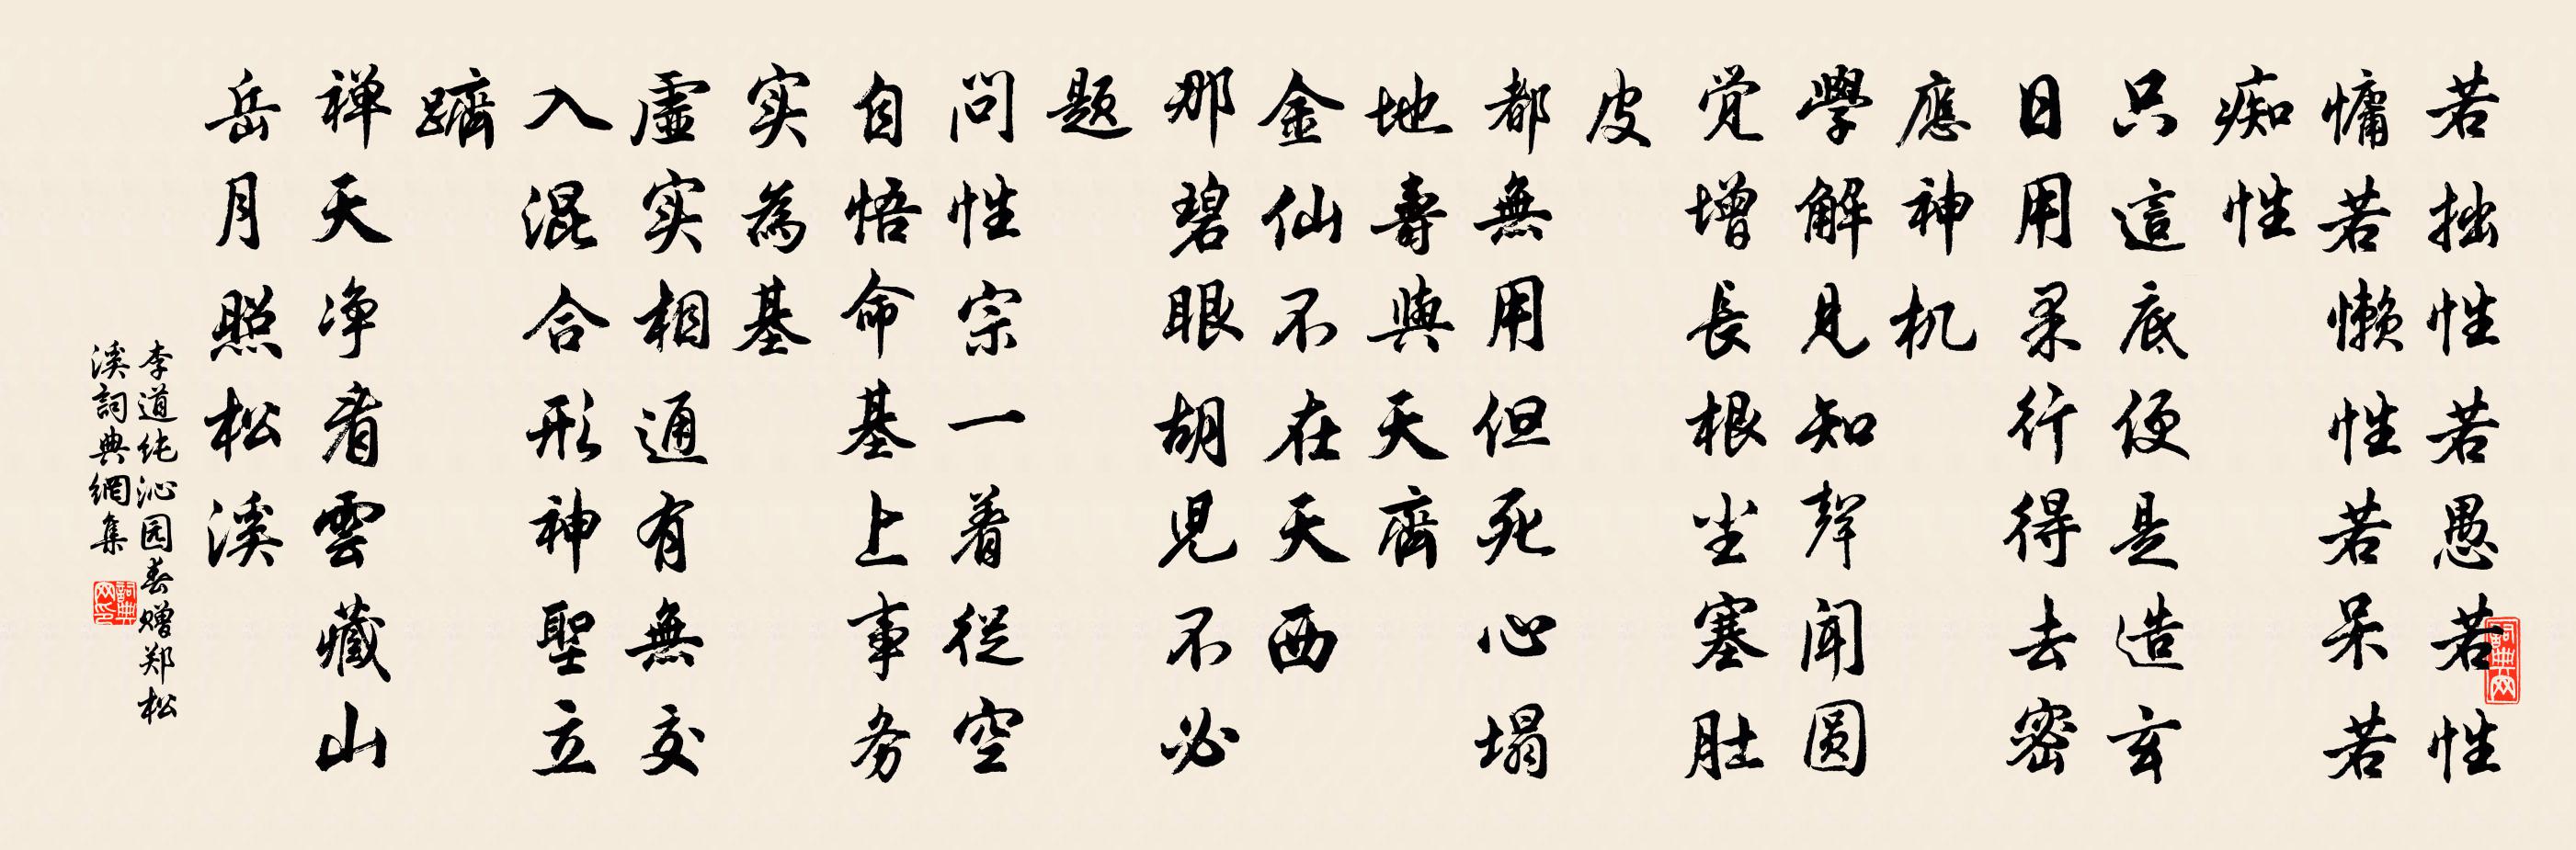 若拙性若愚若性
慵若懒性若呆若
痴性
只這底便是造玄
日用果行得去密
應神机
學解見知聲闻圆
觉增長根尘塞肚
皮
都無用但死心塌
地壽與天齊
金仙不在天西
那碧眼胡児不必
题
问性宗一着從空
自悟命基上事务
实為基
虚实相通有無交
入混合形神聖立
躋
禅天净看雲藏山
岳月照松溪
李道纯沁园春赠郑松
溪詞典網集
詞典网
詞典网印